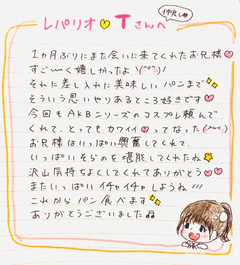 レパリオ♡Tさんへ
1ヶ月ぶりにまた会いに来てくれたお兄様♡
すごーく嬉しかったよ
それに差し入れに美味しいパンまで
そういう思いやりあるところ好きです♡
今回もAKBシリーズのコスプレ頼んで
くれて、とってもカワイイ♡ってなった
お兄様はいっぱい興奮してくれて、
いっぱいそらのを堪能してくれたね
沢山気持ちよくしてくれてありがとう♡
またいっぱいイチャイチャしようね!!!
これからパン食べます
ありがとうございました♫